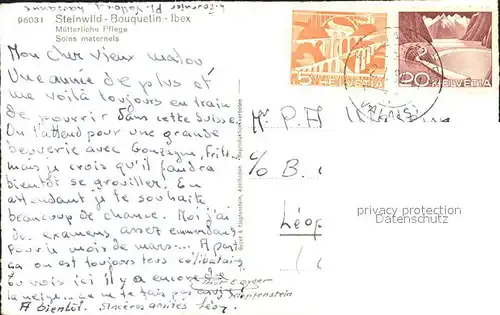 96031 Steinwild - Bouquetin - Ibex
Mütterliche Pflege
Soins maternels
Mon cher vieux malou
Une année de plus et
me voilà toujours en train
de pourrir dans cette Suisse.
On t'attend pour une grande
beuverie avec Gonzague,
mais je crois qu'il faudra
bientôt se grouiller. En
attendant je te souhaite
beaucoup de chance. Moi j'ai
des examens assez emmerdants
pour le mois de mars... A part
ça on est toujours tous célibataires
Tu vois ici il y a encore de
la neige... ça ne te fais pas envie?
A bientôt. Sincères amitiés Léon
Beyer & Klopfenstein, Adelboden Reproduktion verboten
5 HELVETIA
20 HELVETIA
Mr P A
c/o B.
Léop
privacy protection
Datenschutz
Klopfenstein